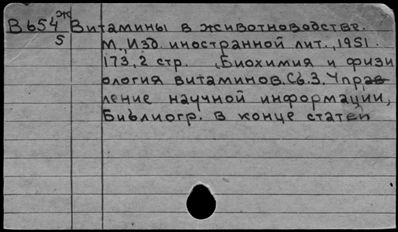 Ж
В654 Витамины в животноводстве.
5 М., Изд. иностранной лит., 1951.
173,2 стр. Биохимия и физи
ология витаминов. Сб. 3. Управ
ление научной информации,
Библиогр. в конце статей